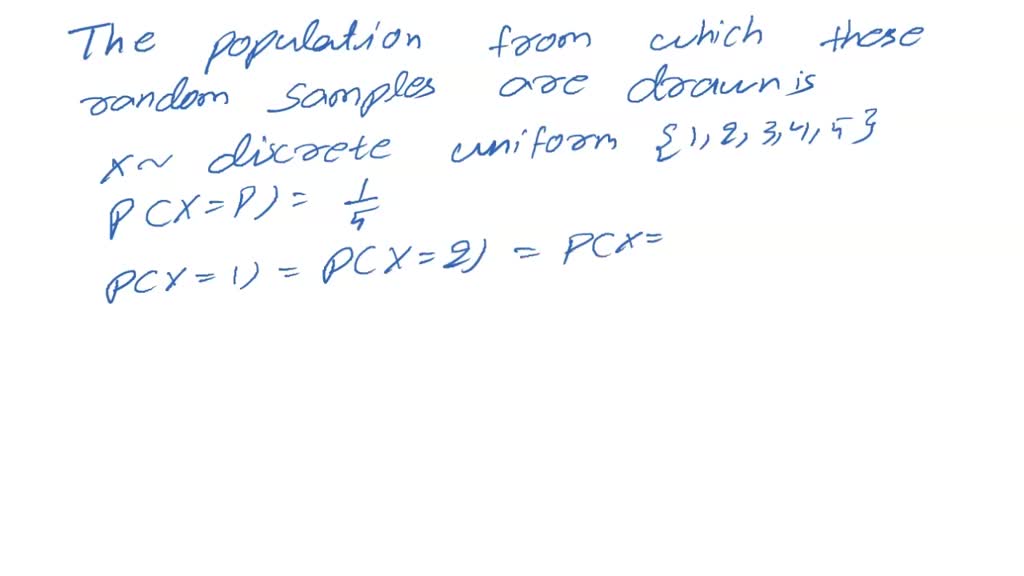 The population from which these
random samples are drawn is
X ~ discrete uniform {1, 2, 3, 4, 5}
P(X = P) = 1/5
P(X = 1) = P(X = 2) = P(X =